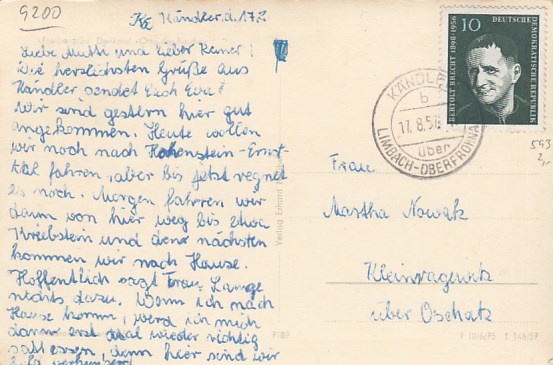 9200
Kändler, d. 17.8.
Liebe Mutti und lieber Reiner!
Die herzlichsten Grüße aus
Kändler sendet Euch Eva!
Wir sind gestern hier gut
angekommen. Heute wollen
wir noch nach Hohenstein-Ernst-
tal fahren, aber bis jetzt regnet
es noch. Morgen fahren wir
dann von hier weg bis etwa
Kriebstein und den nächsten
kommen wir nach Hause.
Hoffentlich sagt Frau Lange
nichts dazu. Wenn ich nach
Hause komm, werd ich mich
dann erst mal wieder richtig
satt essen, denn hier sind wir
10 DEUTSCHE
DEMOKRATISCHE REPUBLIK
BERTOLT BRECHT 1898-1956
KÄNDLER
b
17.8.57
über
LIMBACH-OBERFROHNA
593
2,-
Frau
Martha Nowak
Kleinragewitz
über Oschatz
Verlag Erhard